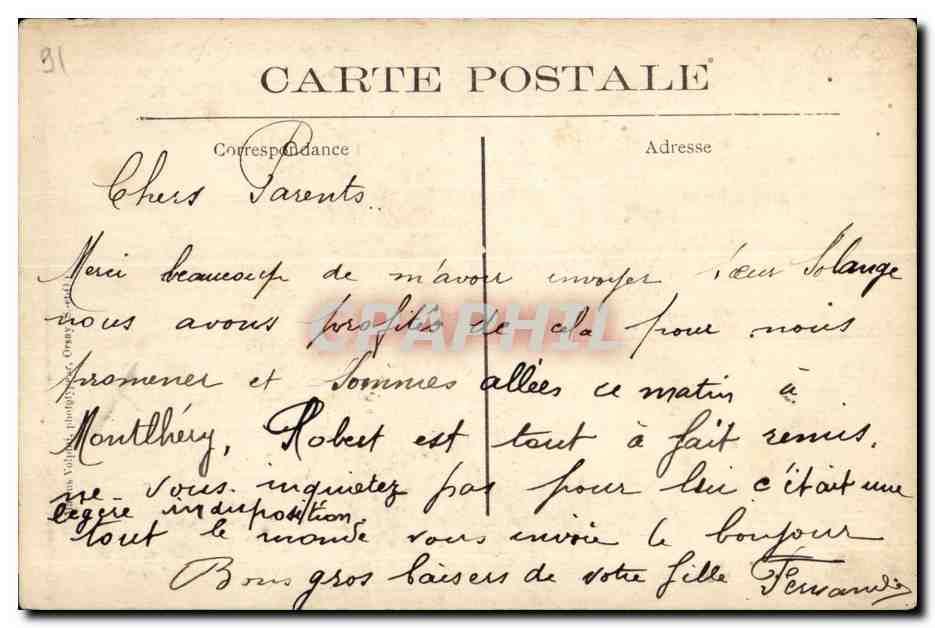 91
CARTE POSTALE
Correspondance
Adresse
Chers Parents..
Merci beaucoup de m'avoir envoyer sœur Solange
nous avons profités de cela pour nous
promener et sommes allées ce matin à
Montlhéry, Robert est tout à fait remis.
ne vous inquietez pas pour lui c'était une
légère indisposition.
tout le monde vous envoie le bonjour
Bons gros baisers de votre fille Fernande
CPAPHIL